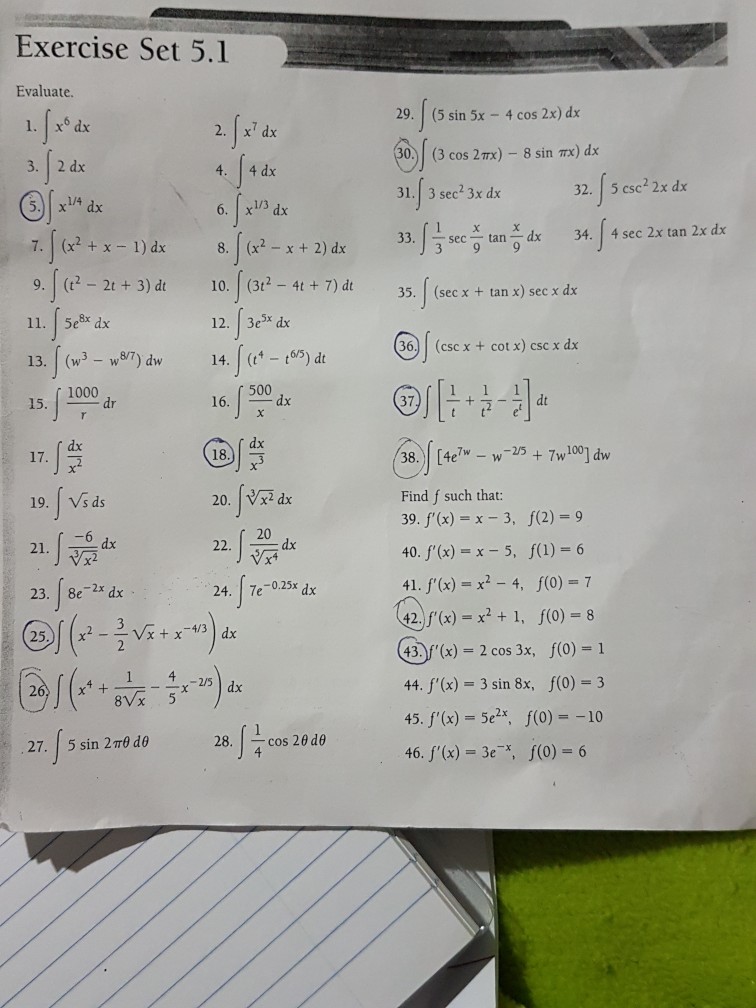 Exercise Set 5.1
Evaluate.
1. ∫ x⁶ dx
2. ∫ x⁷ dx
3. ∫ 2 dx
4. ∫ 4 dx
5. ∫ x^(1/4) dx
6. ∫ x^(1/3) dx
7. ∫ (x² + x − 1) dx
8. ∫ (x² − x + 2) dx
9. ∫ (t² − 2t + 3) dt
10. ∫ (3t² − 4t + 7) dt
11. ∫ 5e^(8x) dx
12. ∫ 3e^(5x) dx
13. ∫ (w³ − w^(8/7)) dw
14. ∫ (t⁴ − t^(6/5)) dt
15. ∫ 1000/r dr
16. ∫ 500/x dx
17. ∫ dx/x²
18. ∫ dx/x³
19. ∫ √s ds
20. ∫ ∛x² dx
21. ∫ −6/∛x² dx
22. ∫ 20/⁵√x⁴ dx
23. ∫ 8e^(−2x) dx
24. ∫ 7e^(−0.25x) dx
25. ∫ (x² − 3/2 √x + x^(−4/3)) dx
26. ∫ (x⁴ + 1/(8√x) − 4/5 x^(−2/5)) dx
27. ∫ 5 sin 2πθ dθ
28. ∫ 1/4 cos 2θ dθ
29. ∫ (5 sin 5x − 4 cos 2x) dx
30. ∫ (3 cos 2πx) − 8 sin πx) dx
31. ∫ 3 sec² 3x dx
32. ∫ 5 csc² 2x dx
33. ∫ 1/3 sec x/9 tan x/9 dx
34. ∫ 4 sec 2x tan 2x dx
35. ∫ (sec x + tan x) sec x dx
36. ∫ (csc x + cot x) csc x dx
37. ∫ [1/t + 1/t² − 1/e^t] dt
38. ∫ [4e^(7w) − w^(−2/5) + 7w^(100)] dw
Find f such that:
39. f′(x) = x − 3, f(2) = 9
40. f′(x) = x − 5, f(1) = 6
41. f′(x) = x² − 4, f(0) = 7
42. f′(x) = x² + 1, f(0) = 8
43. f′(x) = 2 cos 3x, f(0) = 1
44. f′(x) = 3 sin 8x, f(0) = 3
45. f′(x) = 5e^(2x), f(0) = −10
46. f′(x) = 3e^(−x), f(0) = 6